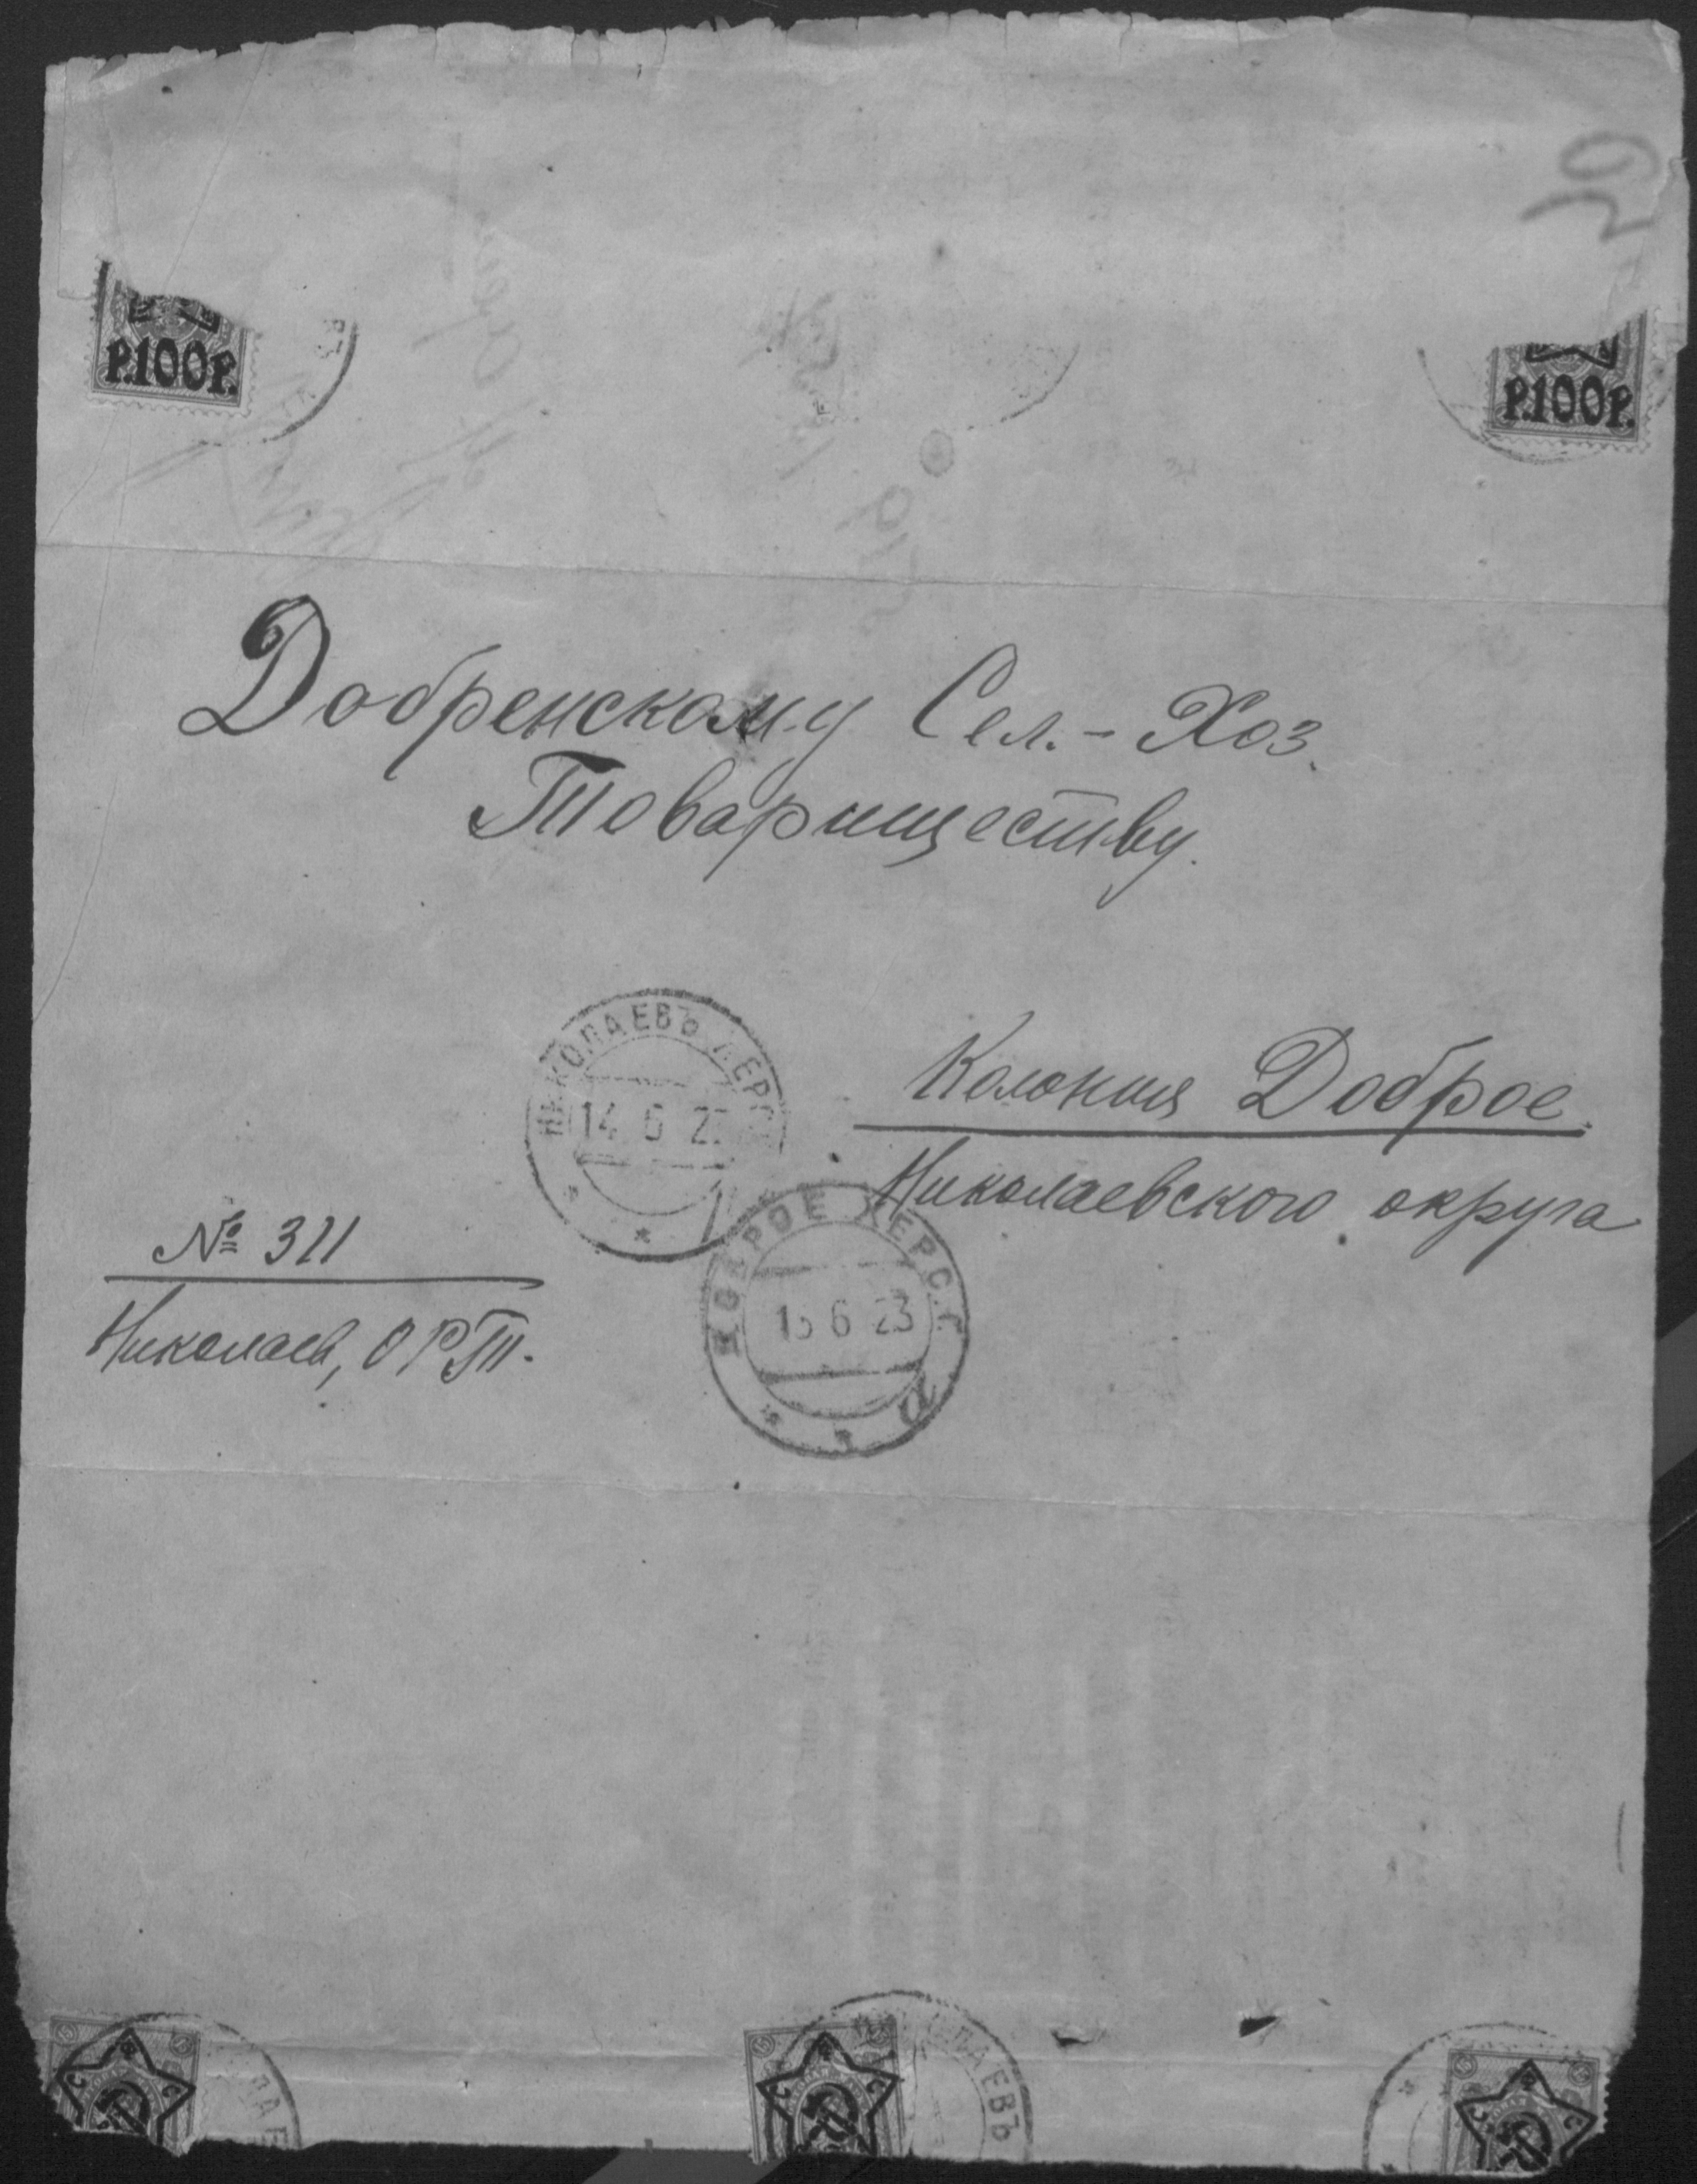 Р.100Р.
Р.100Р.
Добренскому Сел.-Хоз.
Товариществу.
НИКОЛАЕВЪ ХЕРС
14 6 2
Колония Доброе.
Николаевского округа
ДОБРОЕ ХЕРС.Г.
15 6 23
а
№ 311
Николаев, ОРТ.
ЛАЕВЪ